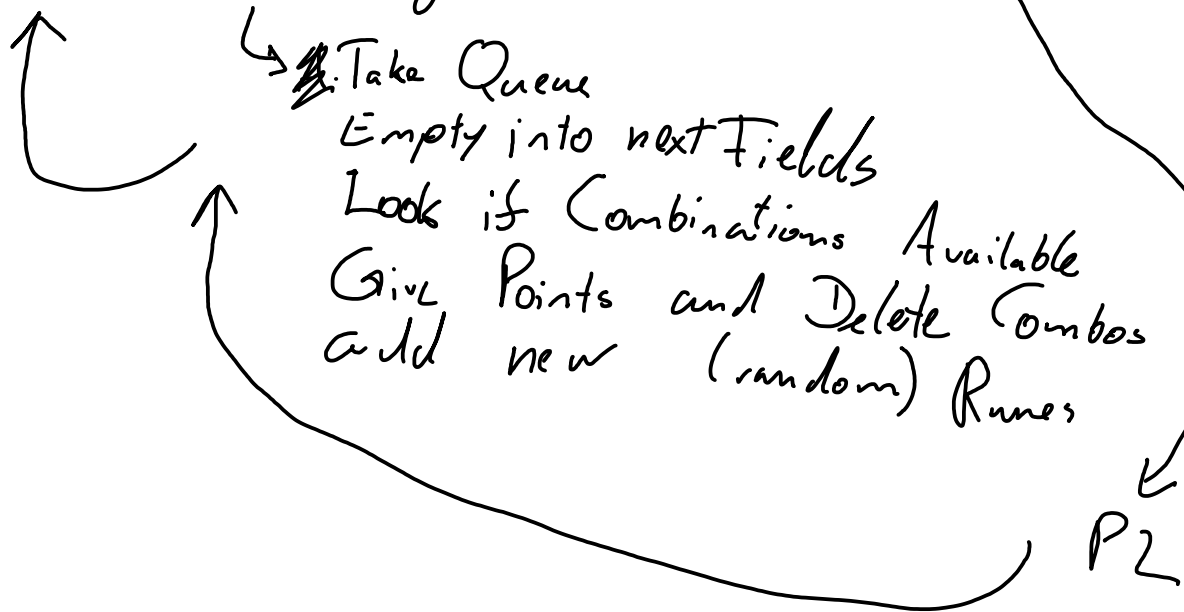 Take Queue
Empty into next Fields
Look if Combinations Available
Give Points and Delete Combos
add new (random) Runes
P2